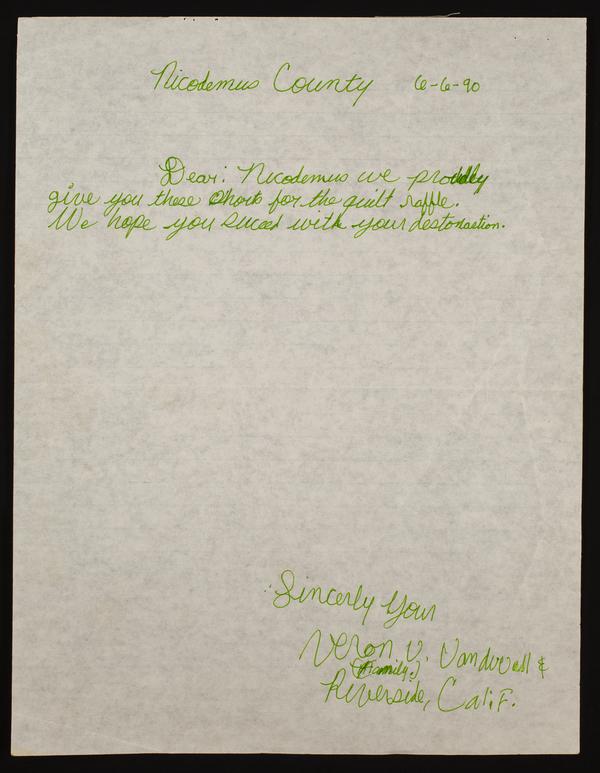 Nicodemus County 6-6-90
Dear: Nicodemus we proudly
give you these for the quilt raffle.
We hope you succed with your
Sincerly Your
Veron V. Vandvall &
(Family)
Riverside, Calif.